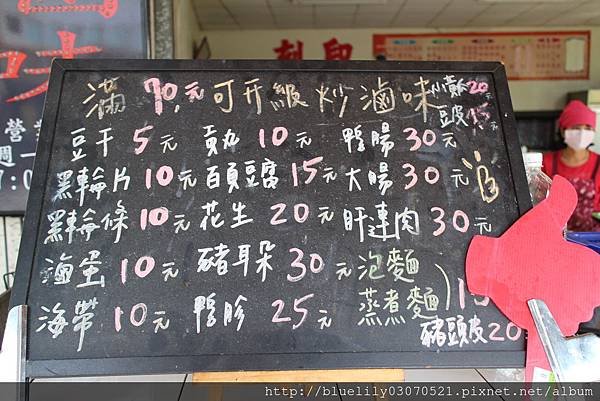 刻印
滿70元可升級炒滷味
小散20
豆皮15
豆干5元 貢丸10元 鴨腸30元
黑輪片10元 百頁豆腐15元 大腸30元
黑輪條10元 花生20元 肝連肉30元
滷蛋10元 豬耳朵30元 泡麵
海帶10元 鴨胗25元 蒸煮麵
豬頭皮20
營業
週一
http://bluelily03070521.pixnet.net/album